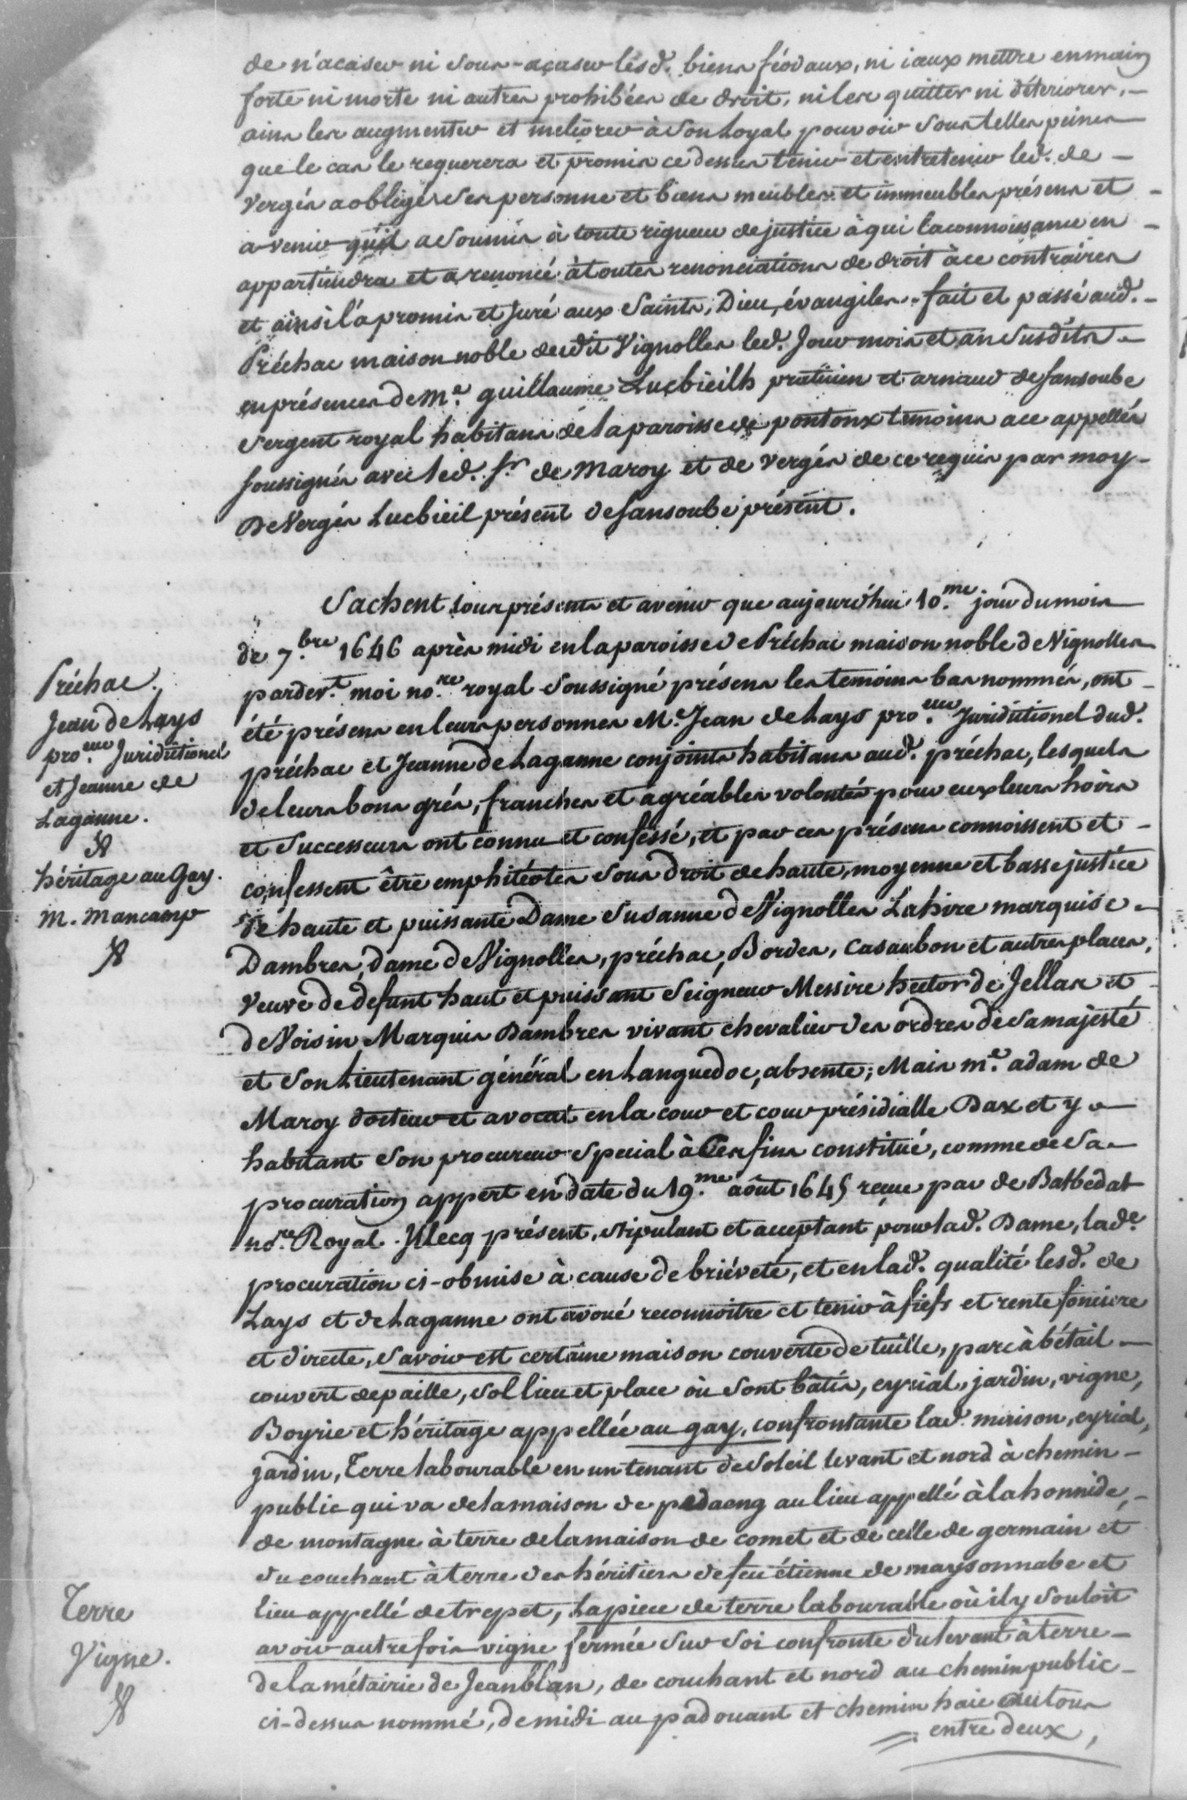 de n'acaser ni sous-açaser lesd. biens féodaux, ni iceux mettre en main
forte ni morte ni autres prohibées de droit, ni les quitter ni détériorer,
ains les augmenter et meliorer à son loyal pouvoir sous telles peines
que le cas le requerera et promis ce dessus tenir et entretenir led. de
Vergés a obligé ses personne et biens meubles et immeubles présens et
avenir qu'il a soumis à toute rigueur de justice à qui la connoissance en
appartiendra et a renoncé à toutes renonciations de droit à ce contraires
et ainsi l'a promis et juré aux Saints, Dieu, évangiles. fait et passé aud.
Préchac maison noble dudit Vignolles led. Jour mois et an susdits
en présences de Me. guillaume Lucbieilh praticien et arnaud desansoube
sergent royal habitans de la paroisse de pontonx temoins a ce appellés
soussignés avec led. sr. de Maroy et de Vergés de ce requis par moy
De Vergés Lucbieil présent desansoube présent.
Sachent tous présents et avenir que aujourd'hui 10.me jour du mois
de 7.bre 1646 après midi en la paroisse de Préchac maison noble de Vignolles
pardevt. moi no.re royal soussigné présens les temoins bas nommés, ont
été présens en leurs personnes Me. Jean de Lays pro.eur Juridictionel dud.
préchac et Jeanne de Laganne conjoints habitans aud. préchac, lesquels
de leurs bons grés, franches et agréables volontés pour eux leurs hoirs
et successeurs ont connu et confessé, et par ces présens connoissent et
confessent être emphitéotes sous droit de haute, moyenne et basse justice
de haute et puissante Dame Susanne de Vignolles Lahire marquise
Dambres, dame de Vignolles, préchac, Bordes, Casaubon et autres places,
veuve de defunt haut et puissant Seigneur Messire hector de Jellas et
de Voisin Marquis Dambres vivant chevalier des ordres de sa majesté
et son Lieutenant général en Languedoc, absente; Mais me. adam de
Maroy docteur et avocat en la cour et cour présidialle Dax et y
habitant son procureur special à Ces fins constitué, comme de sa
procuration appert en date du 19.me août 1645 reçue par de Batbedat
no.re Royal. Illecq présent, stipulant et acceptant pour lad. Dame, lade.
procuration ci-obmise à cause de briéveté, et en lad. qualité lesd. de
Lays et de Laganne ont avoué reconnoitre et tenir à fiefs et rente fonciere
et directe, savoir est certaine maison couverte de tuille, parc à bétail
couvert de paille, sol lieu et place où sont bâtis, eyrial, jardin, vigne,
Boyrie et héritage appellée au gay, confrontante lad. maison, eyrial,
jardin, Terre labourable en un tenant de soleil levant et nord à chemin
public qui va de la maison de pedaeng au lieu appellé à la honnide,
de montagne à terre de la maison de comet et de celle de germain et
du couchant à terre des héritiers de feu étienne de maysonnabe et
lieu appellé de trepet, La piece de terre labourable où il y souloit
avoir autrefois vigne fermée sur soi confronte du levant à terre
de la métairie de Jeanblan, de couchant et nord au chemin public
ci-dessus nommé, de midi au padouant et chemin haie au tour
entre deux,
Préchac.
Jean de Lays
pro.eur Juridictionel
et Jeanne de
Laganne.
héritage au Gay.
M. Mancamp
Terre
Vigne.